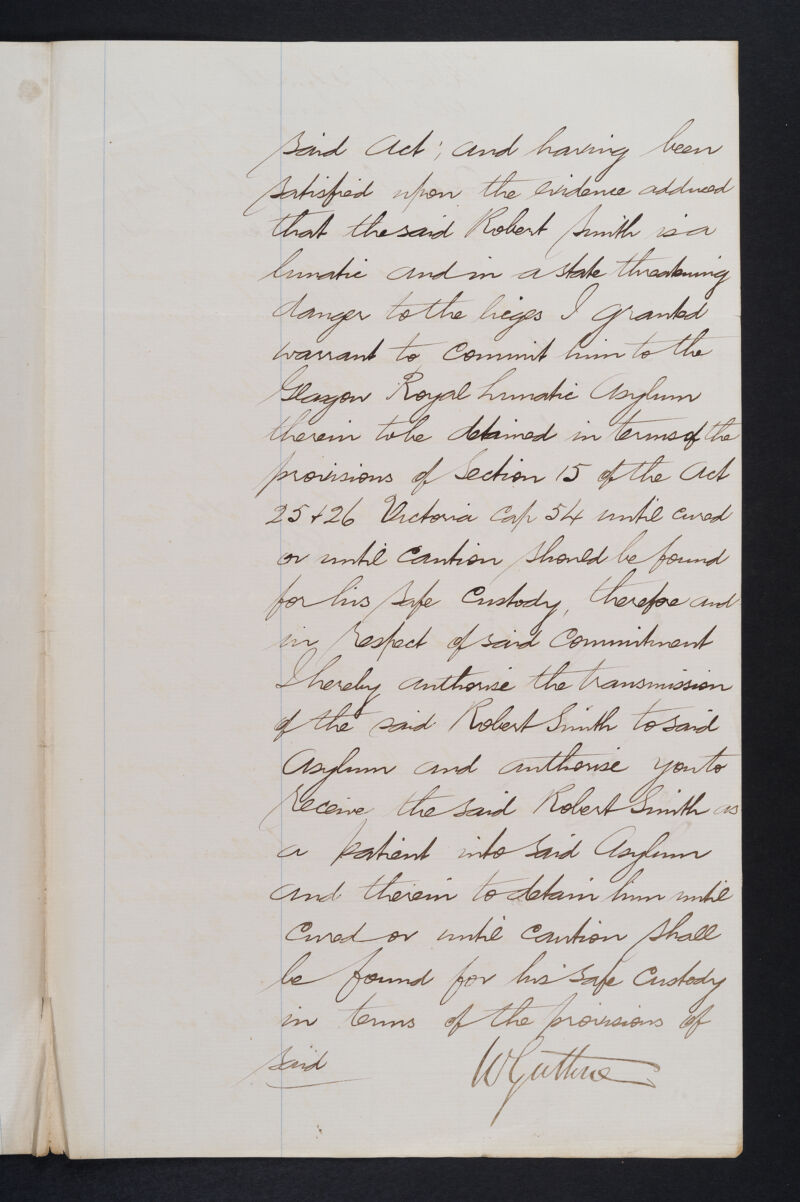 said Act; and having been
satisfied upon the evidence adduced
that the said Robert Smith is a
lunatic and in a state threatening
danger to the lieges I granted
warrant to commit him to the
Glasgow Royal Lunatic Asylum
therein to be detained in terms of the
provisions of Section 15 of the Act
25 & 26 Victoria cap 54 until cured
or until caution should be found
for his safe custody, therefore and
in respect of said commitment
I hereby authorise the transmission
of the said Robert Smith to said
Asylum and authorise you to
receive the said Robert Smith as
a patient into said Asylum
and therein to detain him until
cured or until caution shall
be found for his safe custody
in terms of the provisions of
said
W Guthrie